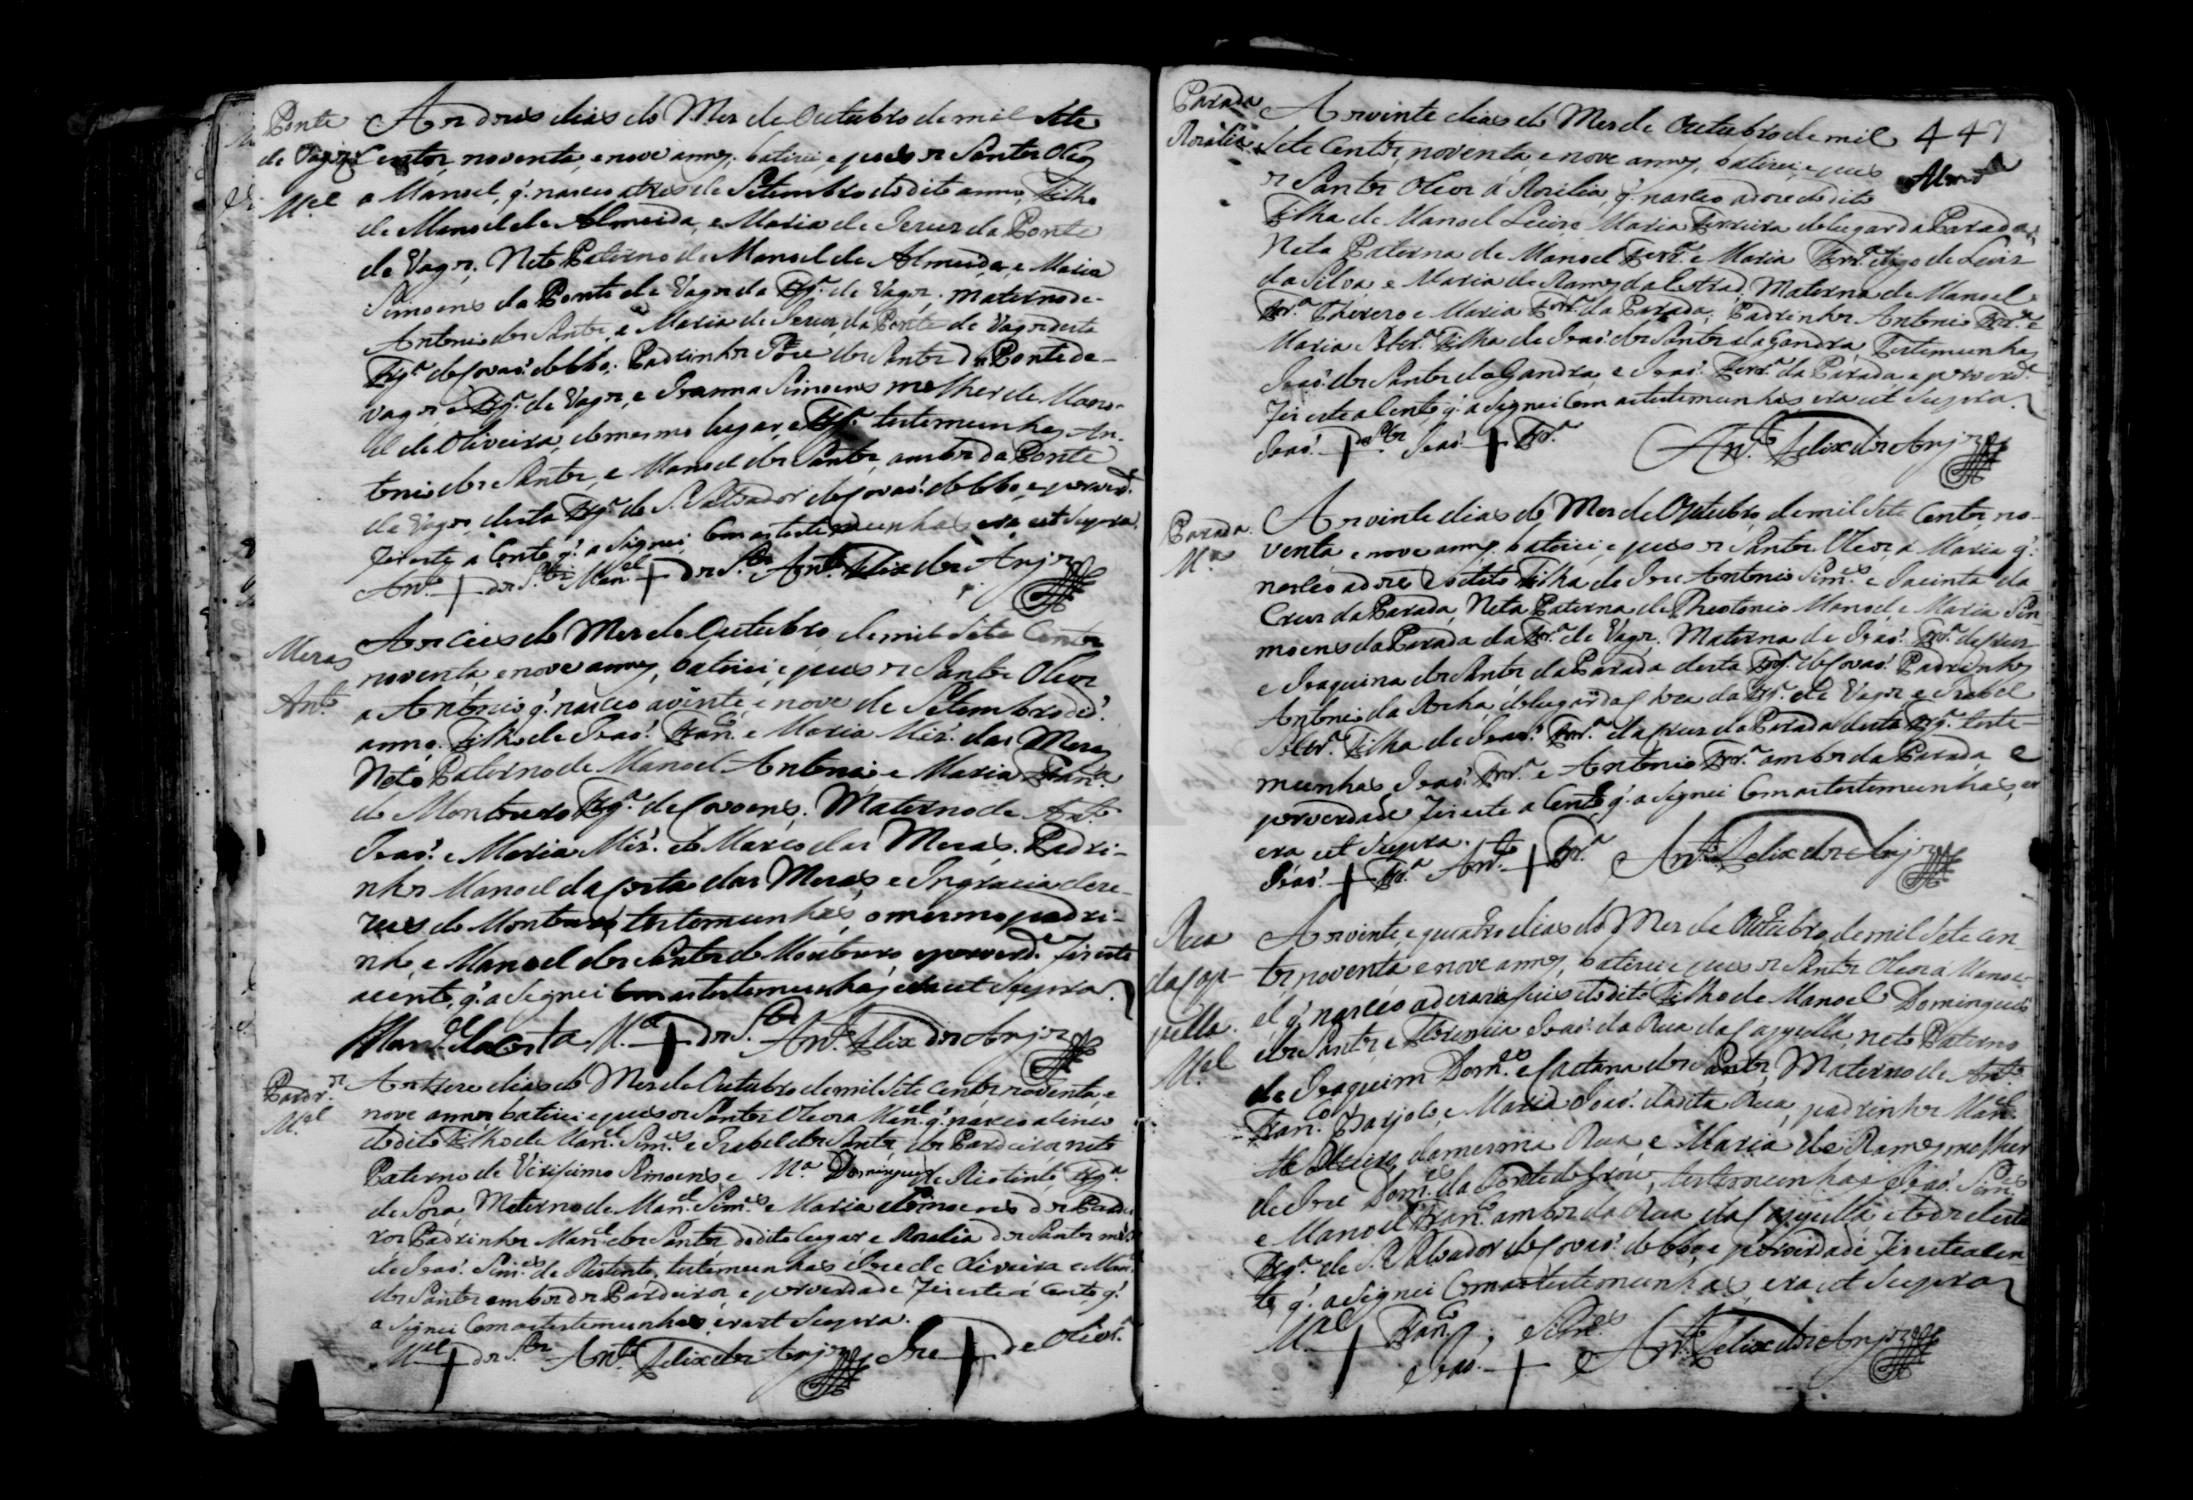 Ponte
de Vagos
M.el
Aos dous dias do Mes de Outubro de mil sete
Centos, noventa, e nove annos, baticei, e pus os Santos Oleos
a Manoel, q̃. nasceo a tres de Setembro do dito anno, Filho
de Manoel de Almeida, e Maria de Jesus da Ponte
de Vagos, Neto Paterno de Manoel de Almeida, e Maria
Simoens da Ponte de Vagos da Frg.ª de Vagos; materno de
Antonio dos Santos, e Maria de Jesus, da Ponte de Vagos desta
Frg.ª de Covaõ do lobo; Padrinhos Joze dos Santos da Ponte de
Vagos e Frg.ª de Vagos, e Joanna Simoens molher de Mano-
el de Oliveira, do mesmo lugar, e Frg.ª testemunhas An-
tonio dos Santos, e Manoel dos Santos, ambos da Ponte
de Vagos, desta Frg.ª de S. Salvador de Covaõ do lobo, e por verd.e
fis este a Cento, q̃. asignei Com as testemunhas era ut Supra.
Ant.º + dos S.tos Man.el + dos S.tos Ant.º Felix dos Anjos
Mesas
Ant.º
Aos seis do Mes de Outubro, de mil Sete Centos
noventa, e nove annos, baticei, e pus os Santos Oleos
a Antonio q̃. nasceo a vinte, e nove de Setembro do d.º
anno. Filho de Joaõ Fran.co e Maria Miz. das Mesas
Neto Paterno de Manoel Antonio e Maria Fran.ca
do Montouro Frg.ª de Covoens. Materno de Ant.º
Joaõ e Maria Miz. do Marco das Mesas. Padri-
nhos Manoel da Costa das Mesas, e Ingracia de Je-
zus do Montouro, testemunhas, o mesmo padri-
nho, e Manoel dos Santos do Montouro e por verd.e fis este
acento, q̃. asignei Com as testemunhas, era ut Supra.
Man.el da Costa M.el + dos S.tos Ant.º Felix dos Anjos
Pardr.os
M.el
Aos treze dias do Mes de Outubro de mil Sete Centos noventa, e
nove annos baticei e pus os Santos Oleos a Man.el q̃. nasceo a sinco
do dito Filho de Man.el Sim.es e Izabel dos Santos, dos Pardieiros neto
Paterno de Verisimo Simoens e M.ª Domingues de Riotinto, Frg.ª
de Soza, Materno de Man.el Sim.es e Maria Simoens dos Pardiei-
ros Padrinhos Man.el dos Santos do dito lugar e Rosalia dos Santos m.er
de Joaõ Sim.es de Riotinto, testemunhas Joze de Oliveira e Man.el
dos Santos ambos dos Pardieiros, e por verdade fis este á Cento, q̃.
asignei Com as testemunhas, era ut Supra.
M.el + dos S.tos Ant.º Felix dos Anjos Joze + de Oliv.ra
447
Parada
Rosalia
Aos vinte dias do Mes de Outubro de mil
Sete Centos, noventa, e nove annos, baticei, e pus
os Santos Oleos á Rosalia, q̃. nasceo a doze do dito
Filha de Manoel Maria Ferreira do lugar da Parada,
Neta Paterna de Manoel Ferr.ª e Maria Ferr.ª digo de Luis
da Silva, e Maria de Ramos da Estrada, Materna de Manoel
Ferr.ª e Maria Ferr.ª da Parada; Padrinhos Antonio Ferr.ª e
Maria Filha de Joaõ dos Santos da Gandra, Testemunhas
Joaõ dos Santos da Gandra, e Joaõ Ferr.ª da Parada, e por verd.e
fis este a Cento, q̃. asignei Com as testemunhas, era ut Supra.
Joaõ + dos S.tos Joaõ + Frr.ª Ant.º Felix dos Anjos
Parada
M.ª
Aos vinte dias do Mes de Outubro, de mil Sete Centos, no-
venta, e nove annos, baticei, e pus os Santos Oleos, á Maria q̃.
nasceo a doze do dito Filha de Joze Antonio Sim.es e Jacinta da
Crus da Parada, Neta Paterna de Theotonio Manoel e Maria Si-
moens da Parada da Frg.ª de Vagos, Materna de Joaõ Ferr.ª da Crus
e Joaquina dos Santos da Parada desta Frg.ª de Covaõ Padrinhos
Antonio da Rocha, do lugar da Frg.ª de Vagos e Izabel
Filha de Joaõ Ferr.ª da Crus da Parada desta Frg.ª teste-
munhas Joaõ Ferr.ª e Antonio Ferr.ª ambos da Parada e
por verdade fis este a Cento q̃. asignei Com as testemunhas,
era ut Supra.
Joaõ + Frr.ª Ant.º + Frr.ª Ant.º Felix dos Anjos
Rua
da Cap-
pella.
M.el
Aos vinte, e quatro dias do Mes de Outubro, de mil Sete Cen-
tos noventa, e nove annos, baticei e pus os Santos Oleos á Mano-
el q̃. nasceo a dezaseis do dito Filho de Manoel Domingues
dos Santos, e Florencia Joaõ da Rua da Cappella, neto Paterno
de Joaquim Dom.es e Caetana dos Santos, Materno de Ant.º
Fran.co e Maria Joaõ da dita Rua, padrinhos Man.el
da mesma Rua e Maria de Ramos molher
de Joze Dom.es da Ponte, testemunhas Joaõ Sim.es
e Manoel Fran.co ambos da Rua da Cappella, e todos desta
Frg.ª de S. Salvador de Covaõ do lobo, e por verdade fis este a Cen-
to, q̃. asignei Com as testemunhas, era ut Supra
M.el + Fran.co
Joaõ + Sim.es Ant.º Felix dos Anjos